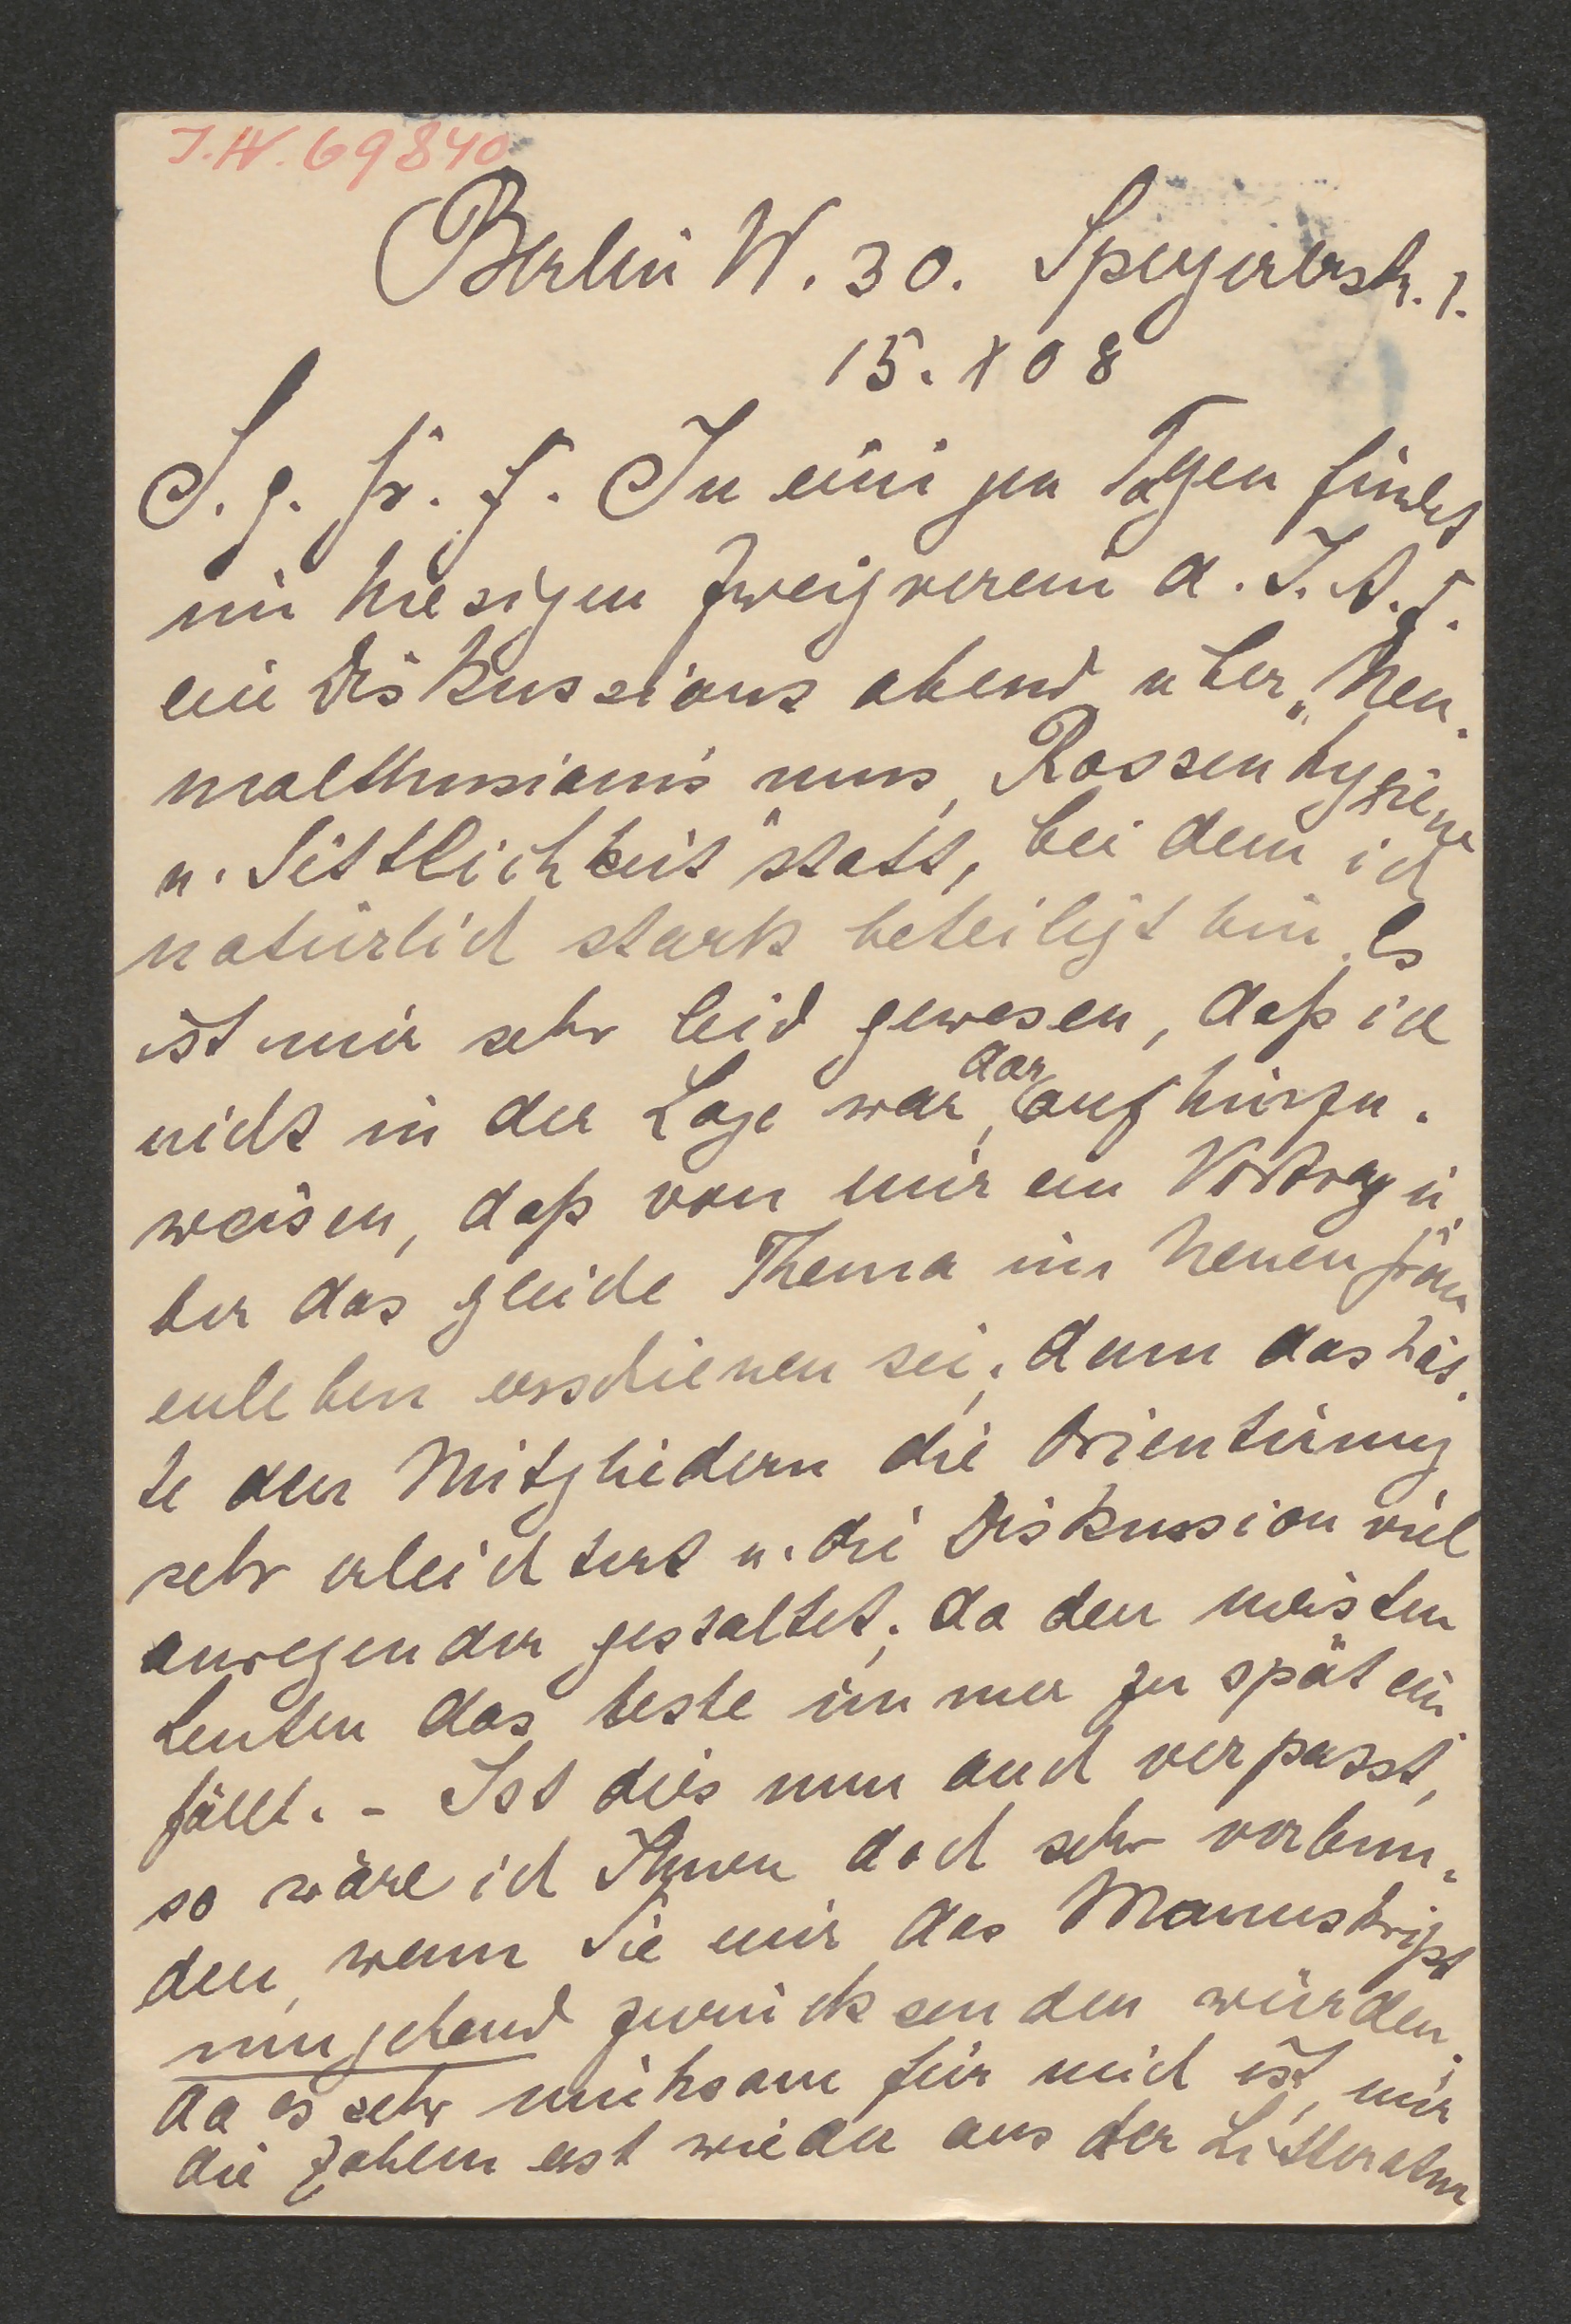 J.N. 69840
Berlin W. 30. Speyererstr. 1.
15. X 08
S. g. Fr. F. In einigen Tagen findet
im hiesigen Zweigverein d. I. A. F.
ein Diskussionsabend über „Neu-
malthusianismus, Rassenhygiene
u. Sittlichkeit" statt, bei dem ich
natürlich stark beteiligt bin. Es
ist mir sehr leid gewesen, daß ich
nicht in der Lage war, darauf hinzu-
weisen, daß von mir ein Vortrag ü-
ber das gleiche Thema im Neuen Frau
enleben erschienen sei; denn das hät-
te den Mitgliedern die Orientirung
sehr erleichtert u. die Diskussion viel
anregender gestaltet; da den meisten
Leuten das beste immer zu spät ein
fällt. - Ist dies nun auch verpasst,
so wäre ich Ihnen doch sehr verbun-
den, wenn Sie mir das Manuskript
umgehend zurücksenden würden,
da es sehr mühsam für mich ist, mir
die Zahlen erst wieder aus der Litteratur